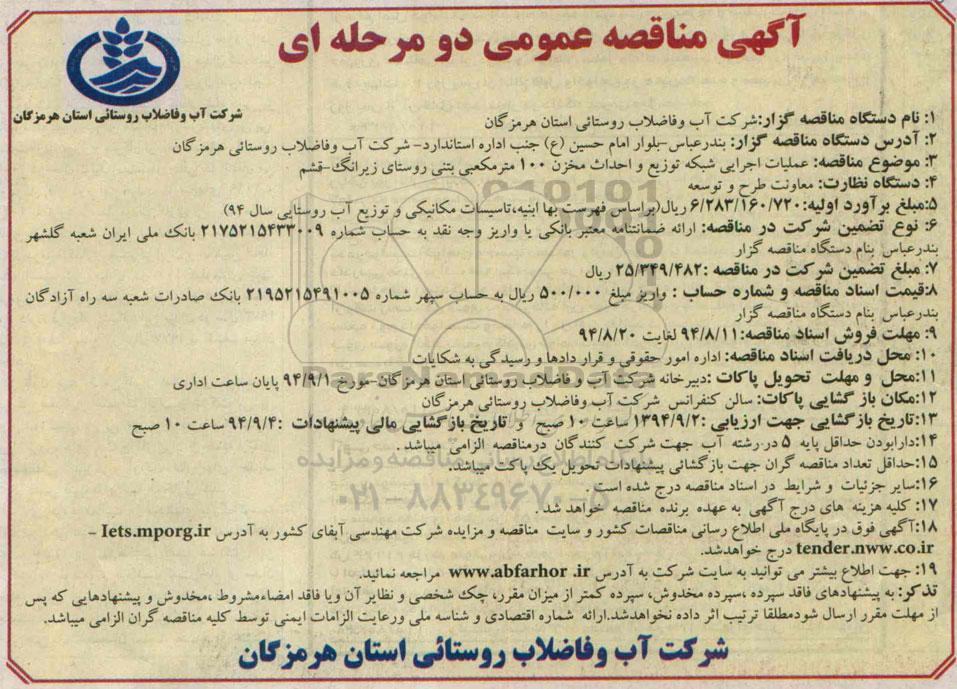 آگهی مناقصه عمومی دو مرحله ای
شرکت آب وفاضلاب روستائی استان هرمزگان
۱: نام دستگاه مناقصه گزار:شرکت آب وفاضلاب روستائی استان هرمزگان
۲: آدرس دستگاه مناقصه گزار: بندرعباس-بلوار امام حسین (ع) جنب اداره استاندارد- شرکت آب وفاضلاب روستائی هرمزگان
۳: موضوع مناقصه: عملیات اجرایی شبکه توزیع و احداث مخزن ۱۰۰ مترمکعبی بتنی روستای زیرانگ-قشم
۴: دستگاه نظارت: معاونت طرح و توسعه
۵:مبلغ برآورد اولیه:۶/۲۸۳/۱۶۰/۷۲۰ ریال(براساس فهرست بها ابنیه،تاسیسات مکانیکی و توزیع آب روستایی سال ۹۴)
۶: نوع تضمین شرکت در مناقصه: ارائه ضمانتنامه معتبر بانکی یا واریز وجه نقد به حساب شماره ۲۱۷۵۲۱۵۴۳۳۰۰۹ بانک ملی ایران شعبه گلشهر
بندرعباس بنام دستگاه مناقصه گزار
۷: مبلغ تضمین شرکت در مناقصه :۲۵/۳۴۹/۴۸۲ ریال
۸:قیمت اسناد مناقصه و شماره حساب : واریز مبلغ ۵۰۰/۰۰۰ ریال به حساب سپهر شماره ۲۱۹۵۲۱۵۴۹۱۰۰۵ بانک صادرات شعبه سه راه آزادگان
بندرعباس بنام دستگاه مناقصه گزار
۹: مهلت فروش اسناد مناقصه:۹۴/۸/۱۱ لغایت ۹۴/۸/۲۰
۱۰: محل دریافت اسناد مناقصه: اداره امور حقوقی و قرار دادها و رسیدگی به شکایات
۱۱:محل و مهلت تحویل پاکات :دبیرخانه شرکت آب و فاضلاب روستائی استان هرمزگان-مورخ ۹۴/۹/۱ پایان ساعت اداری
۱۲:مکان باز گشایی پاکات: سالن کنفرانس شرکت آب وفاضلاب روستائی هرمزگان
۱۳:تاریخ بازگشایی جهت ارزیابی :۱۳۹۴/۹/۲ ساعت ۱۰ صبح/ و تاریخ بازگشایی مالی پیشنهادات :۹۴/۹/۴ ساعت ۱۰ صبح
۱۴:دارابودن حداقل پایه ۵ در رشته آب جهت شرکت کنندگان درمناقصه الزامی میباشد .
۱۵:حداقل تعداد مناقصه گران جهت بازگشائی پیشنهادات تحویل یک پاکت میباشد.
۱۶:سایر جزئیات و شرایط در اسناد مناقصه درج شده است .
۱۷: کلیه هزینه های درج آگهی به عهده برنده مناقصه خواهد شد .
۱۸:آگهی فوق در پایگاه ملی اطلاع رسانی مناقصات کشور و سایت مناقصه و مزایده شرکت مهندسی آبفای کشور به آدرس Iets.mporg.ir –
tender.nww.co.ir درج خواهدشد.
۱۹: جهت اطلاع بیشتر می توانید به سایت شرکت به آدرس www.abfarhor .ir مراجعه نمائید.
تذکر: به پیشنهادهای فاقد سپرده ،سپرده مخدوش، سپرده کمتر از میزان مقرر، چک شخصی و نظایر آن ویا فاقد امضاءمشروط ،مخدوش و پیشنهادهایی که پس
از مهلت مقرر ارسال شودمطلقا ترتیب اثر داده نخواهدشد.ارائه شماره اقتصادی و شناسه ملی ورعایت الزامات ایمنی توسط کلیه مناقصه گران الزامی میباشد.
شرکت آب وفاضلاب روستائی استان هرمزگان
ParsNamadData
پایگاه اطلاع رسانی مناقصه و مزایده
۰۲۱-۸۸۳۴۹۶۷۰-۵